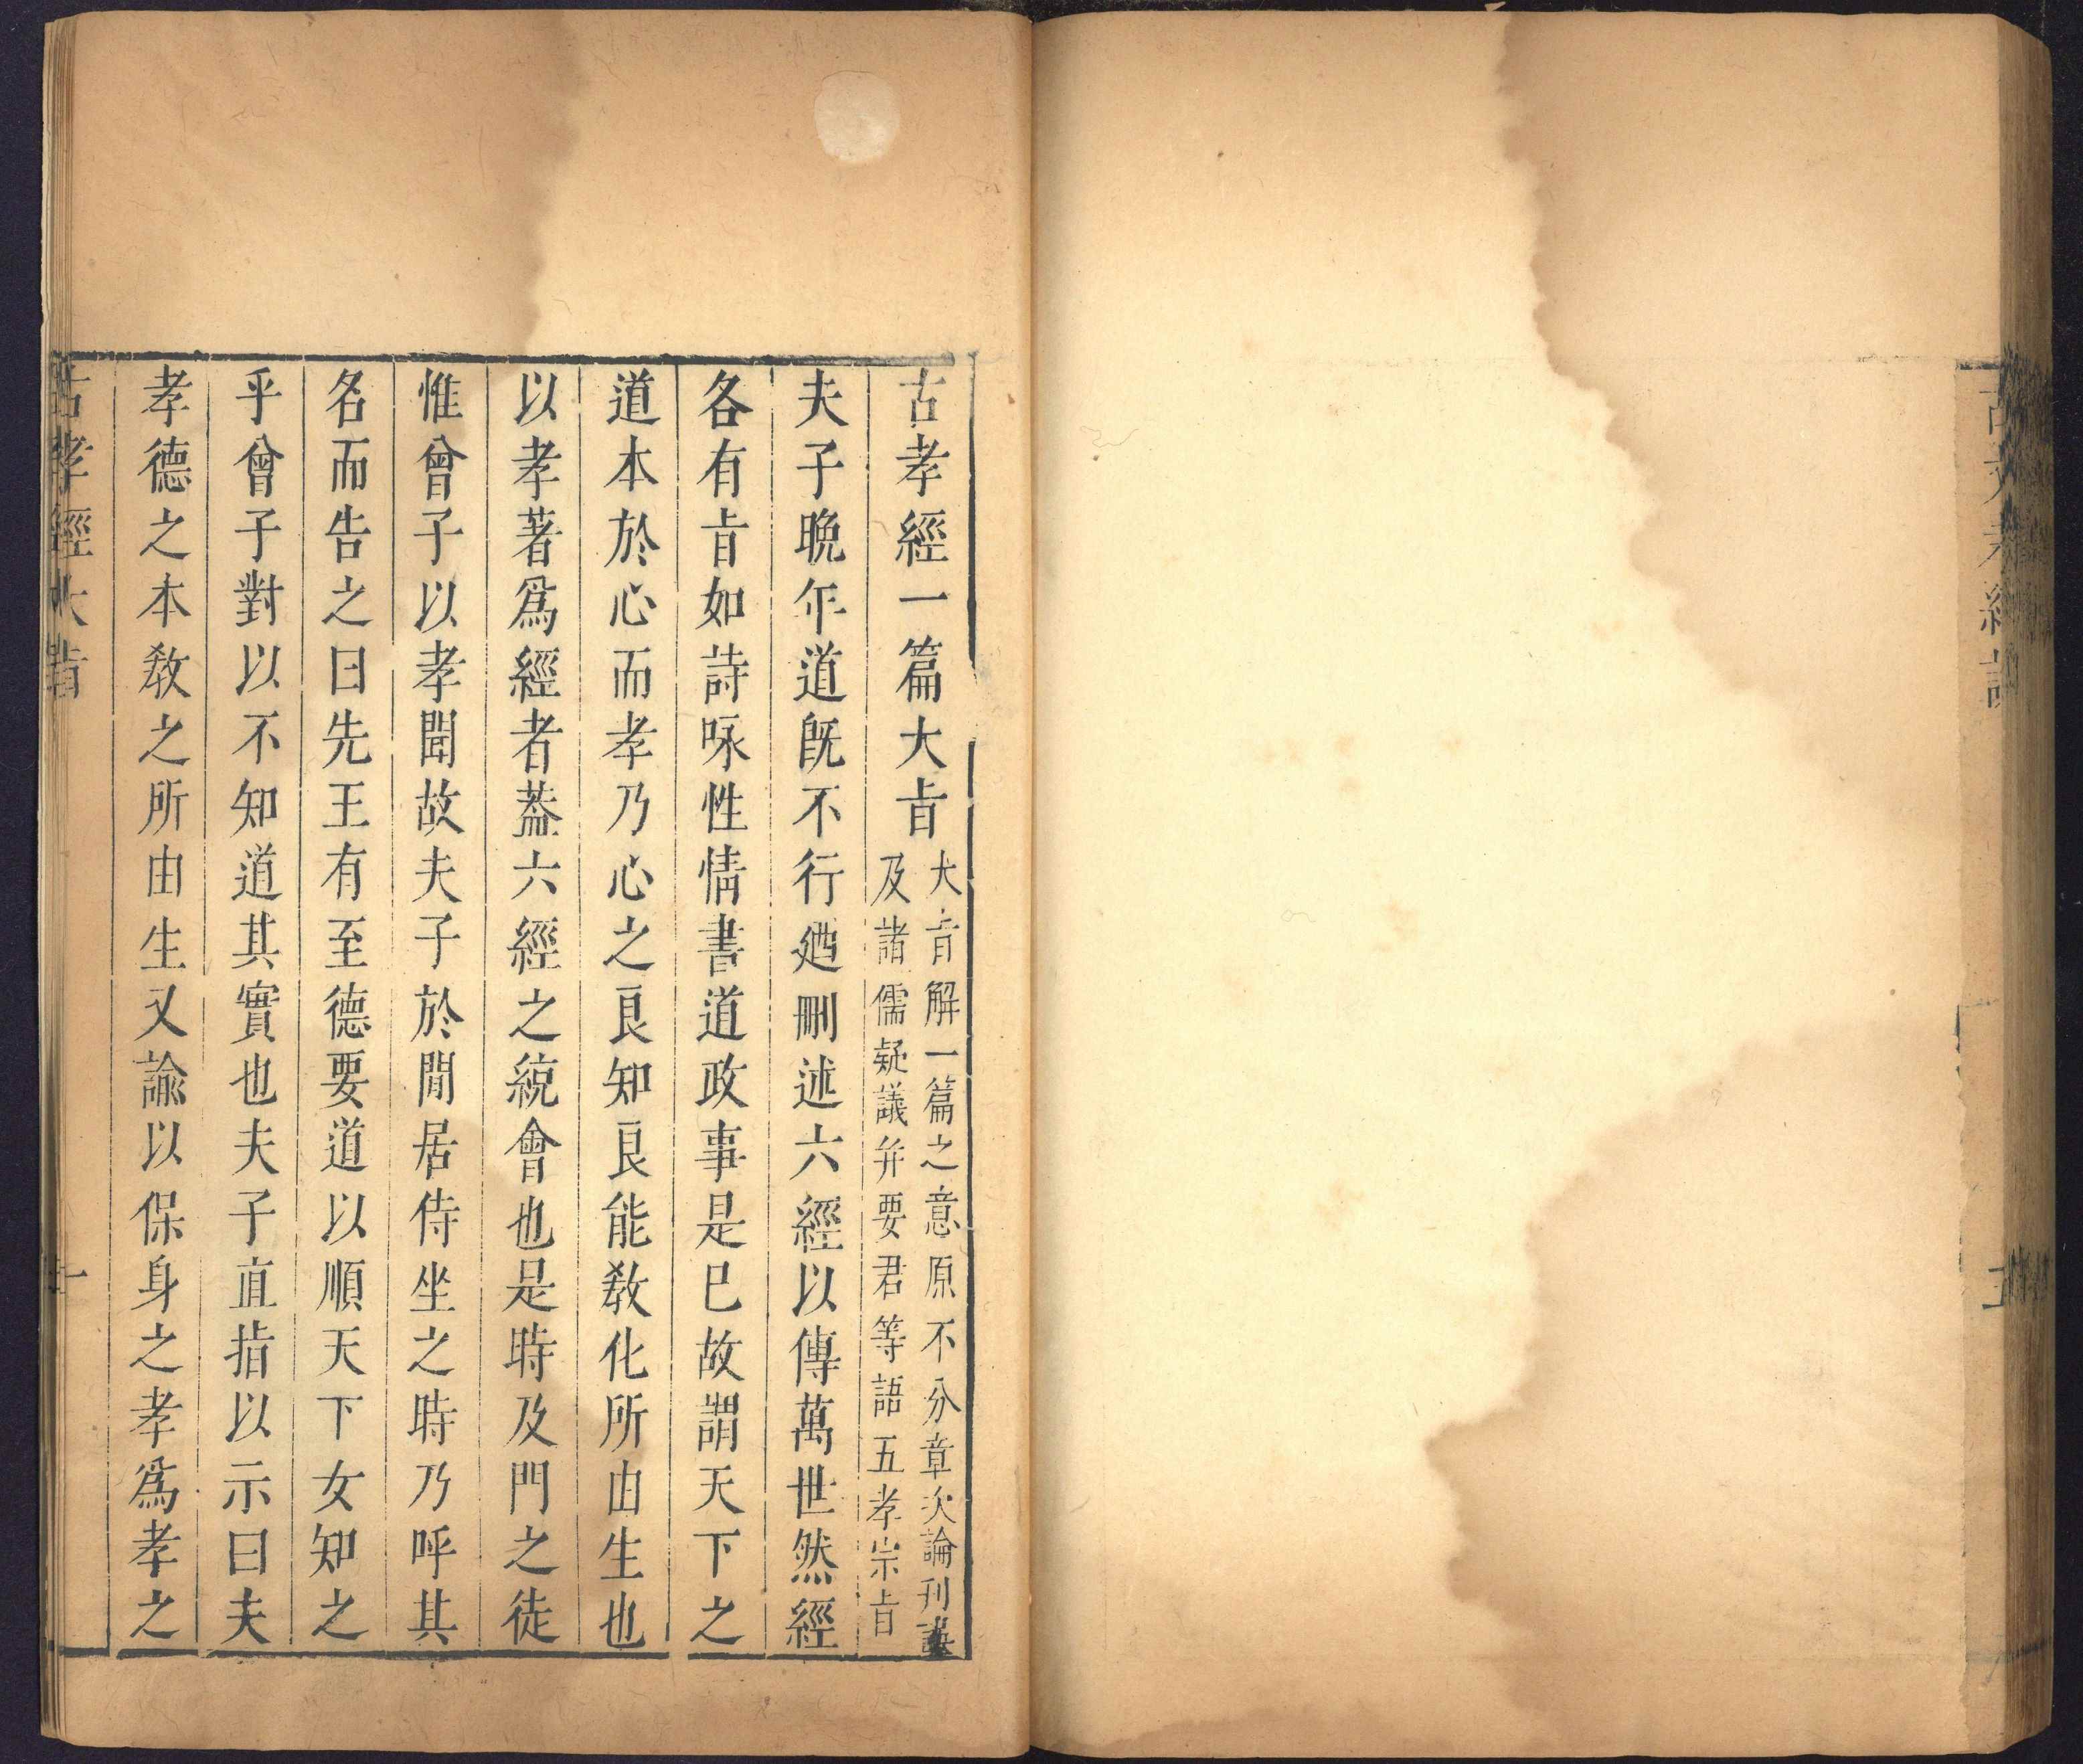 古孝經一篇大㫖
大㫖解一篇之意原不分章次論刊誤
及諸儒疑議并要君等語五孝宗㫖
夫子晩年道既不行廼刪述六經以傳萬世然經
各有㫖如詩咏性情書道政事是已故謂天下之
道本於心而孝乃心之良知良能教化所由生也
以孝著爲經者葢六經之綂會也是時及門之徒
惟曾子以孝聞故夫子於閒居侍坐之時乃呼其
名而告之曰先王有至德要道以順天下女知之
乎曾子對以不知道其實也夫子直指以示曰夫
孝德之本教之所由生又諭以保身之孝爲孝之
古孝經大㫖
一
古文孝經
五